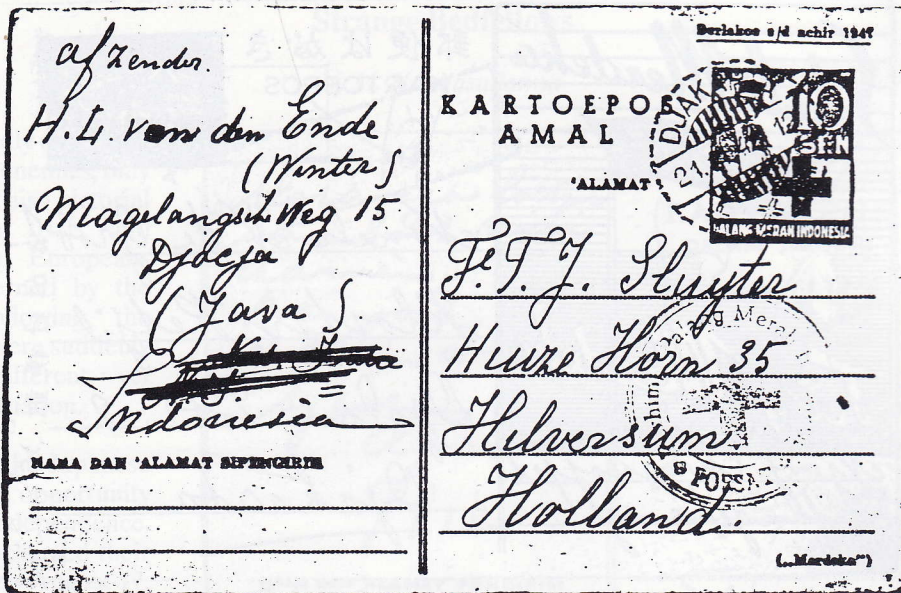 af zender.
H. L. van den Ende
(Winter)
Magelangsche Weg 15
Djocja
(Java)
Indonesia
NAMA DAN 'ALAMAT SIPENGIRIM
Berlakoe s/d achir 1947
KARTOEPOS
AMAL
'ALAMAT
DJAK
21. 12
10
SEN
PALANG MERAH INDONESIA
F. T. J. Sluyter
Huize Horn 35
Hilversum
Holland.
Palang Merah
POESAT
(„Merdeka")